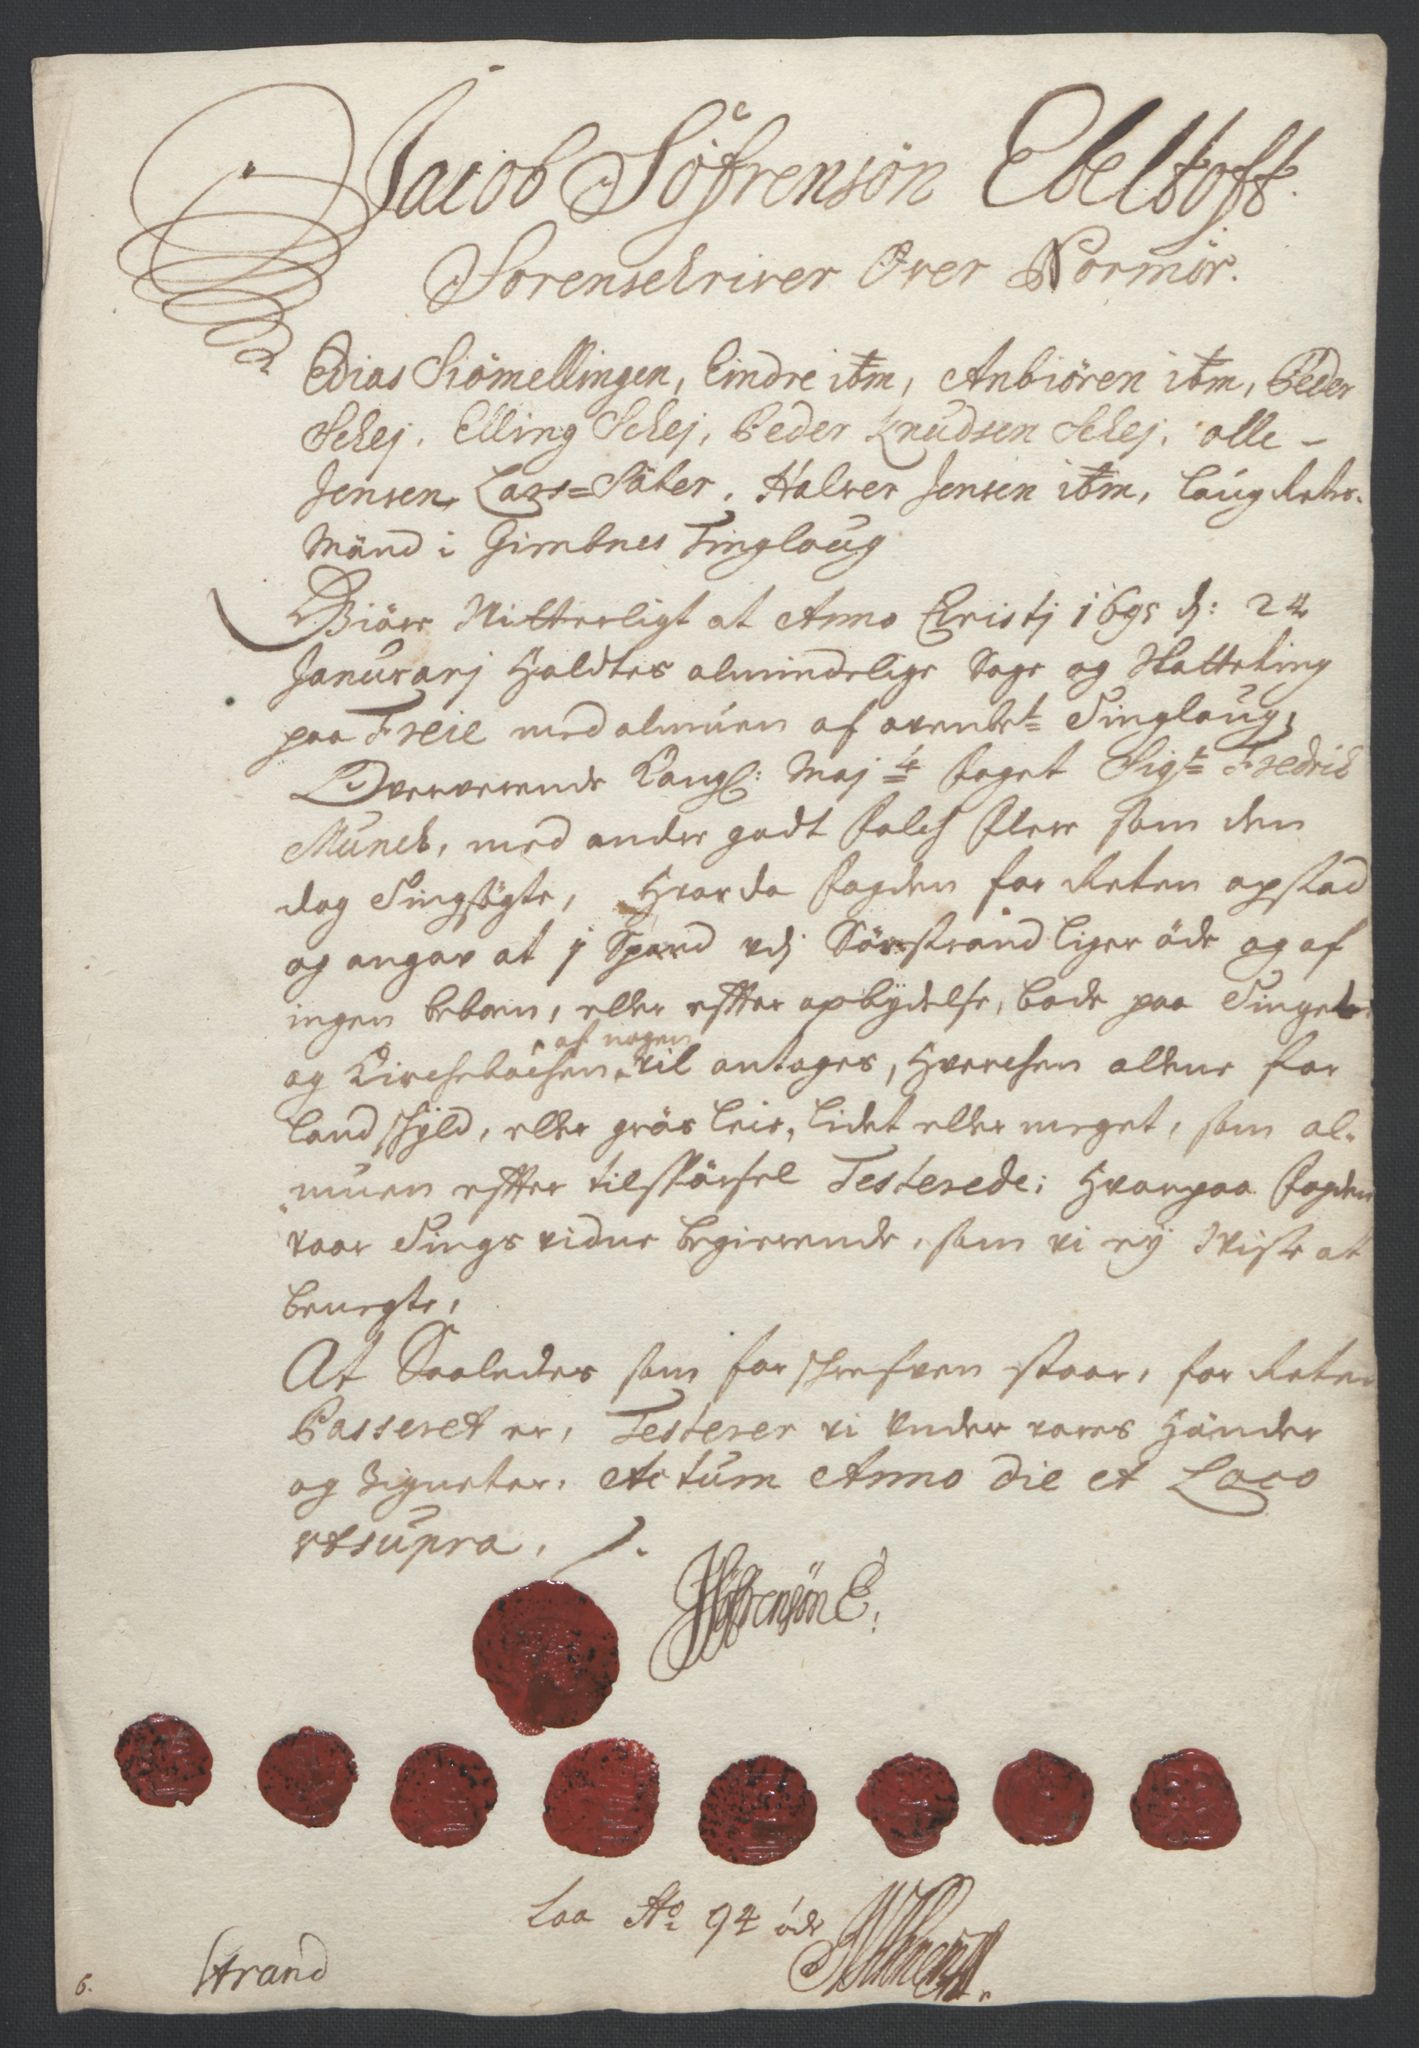 Jacob Söfrensön Ebeltoft.
Sorenschriver Over Normör.
Elias Siömellingen, Eindre itm, Anbiören itm, Peder
Schej, Elling Schej, Peder Knudsen Schej, olle
Jensen Lars=Säter, Halver Jensen itm, laug Retes-
Mänd i Gimbnes Tinglaug
Giöre Witterligt at Anno Christj 1695 dj: 24
Januarij Holdtes almindelige Sage og Skatteting
paa Freie med almuen af ovenbete Tinglaug,
Oververende Kongl: Maj ts foget Sigr Fredrich
Munch, med ander godt folch flere som den
dag Tingsögte, Hvor da fogden for Reten opstod
og angav at j Spand udj Sörstrand liger öde og af
ingen beboen, eller effter opbydelse, bode paa Tinget
og Kirchebachen af nogen vil antages, Hverchen allene for
landschyld, eller gräs leie, lidet eller meget, som al-
muen effter tilspörsel Testerede; Hvorpaa fogden
vaar Tings vidne begierende, som vi ey viste at
benegte,
At Saaledes som forschrefven staar, for Reten
Passeret er, Testerer vi under vores Händer
og Zigneter. Actum Anno die et Loco
utsupra.
JSöfrensön E:
Laa Ao 94 öde
Strand
6.